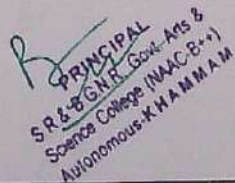 PRINCIPAL
SR & BGNR. Govt. Arts &
Science College (NAAC-B++)
Autonomous-KHAMMAM